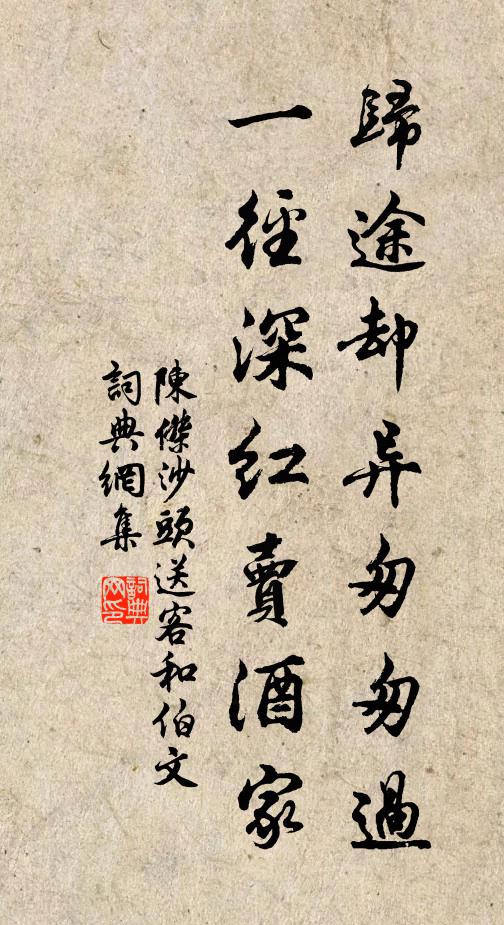 歸途却异匆匆過
一徑深紅賣酒家
陳傑沙頭送客和伯文
詞典網集
詞典
网印